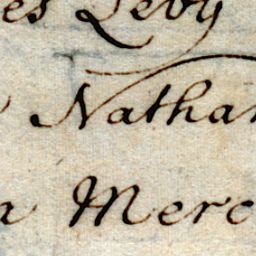 es Levy
Nathan
a Merc